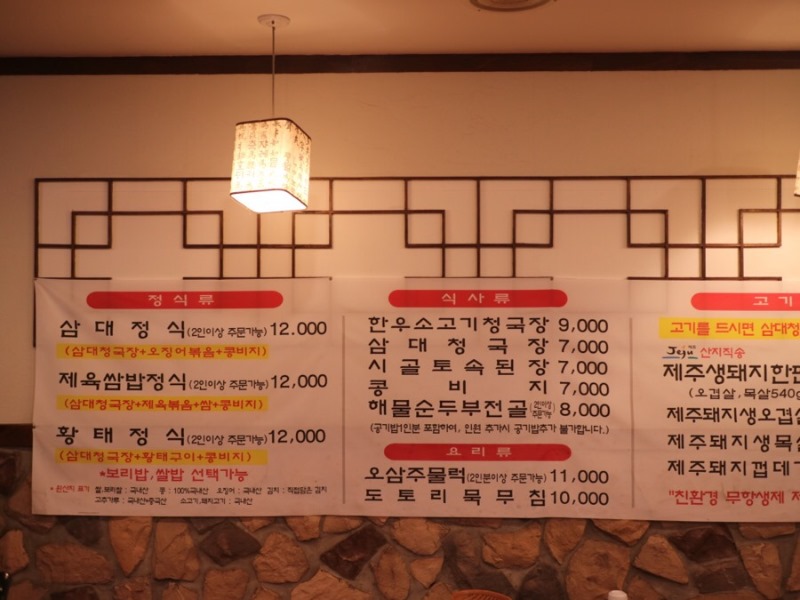 정식류
삼대정식(2인이상 주문가능) 12.000
(삼대청국장+오징어볶음+콩비지)
제육쌈밥정식(2인이상 주문가능) 12,000
(삼대청국장+제육볶음+쌈+콩비지)
황태정식(2인이상 주문가능) 12,000
(삼대청국장+황태구이+콩비지)
*보리밥,쌀밥 선택가능
* 원산지 표기 쌀,보리쌀 : 국내산 콩 : 100%국내산 오징어 : 국내산 김치 : 직접담은 김치
고추가류 : 국내산+중국산 소고기,돼지고기 : 국내산
식사류
한우소고기청국장 9,000
삼대청국장 7,000
시골토속된장 7,000
콩비지 7,000
해물순두부전골(2인이상 주문가능) 8,000
(공기밥1인분 포함하여, 인원 추가시 공기밥추가 불가합니다.)
요리류
오삼주물럭(2인분이상 주문가능) 11,000
도토리묵무침 10,000
고기
고기를 드시면 삼대청
Jeju 산지직송
제주생돼지한판
(오겹살, 목살540g
제주돼지생오겹살
제주돼지생목살
제주돼지껍데기
"친환경 무항생제 제